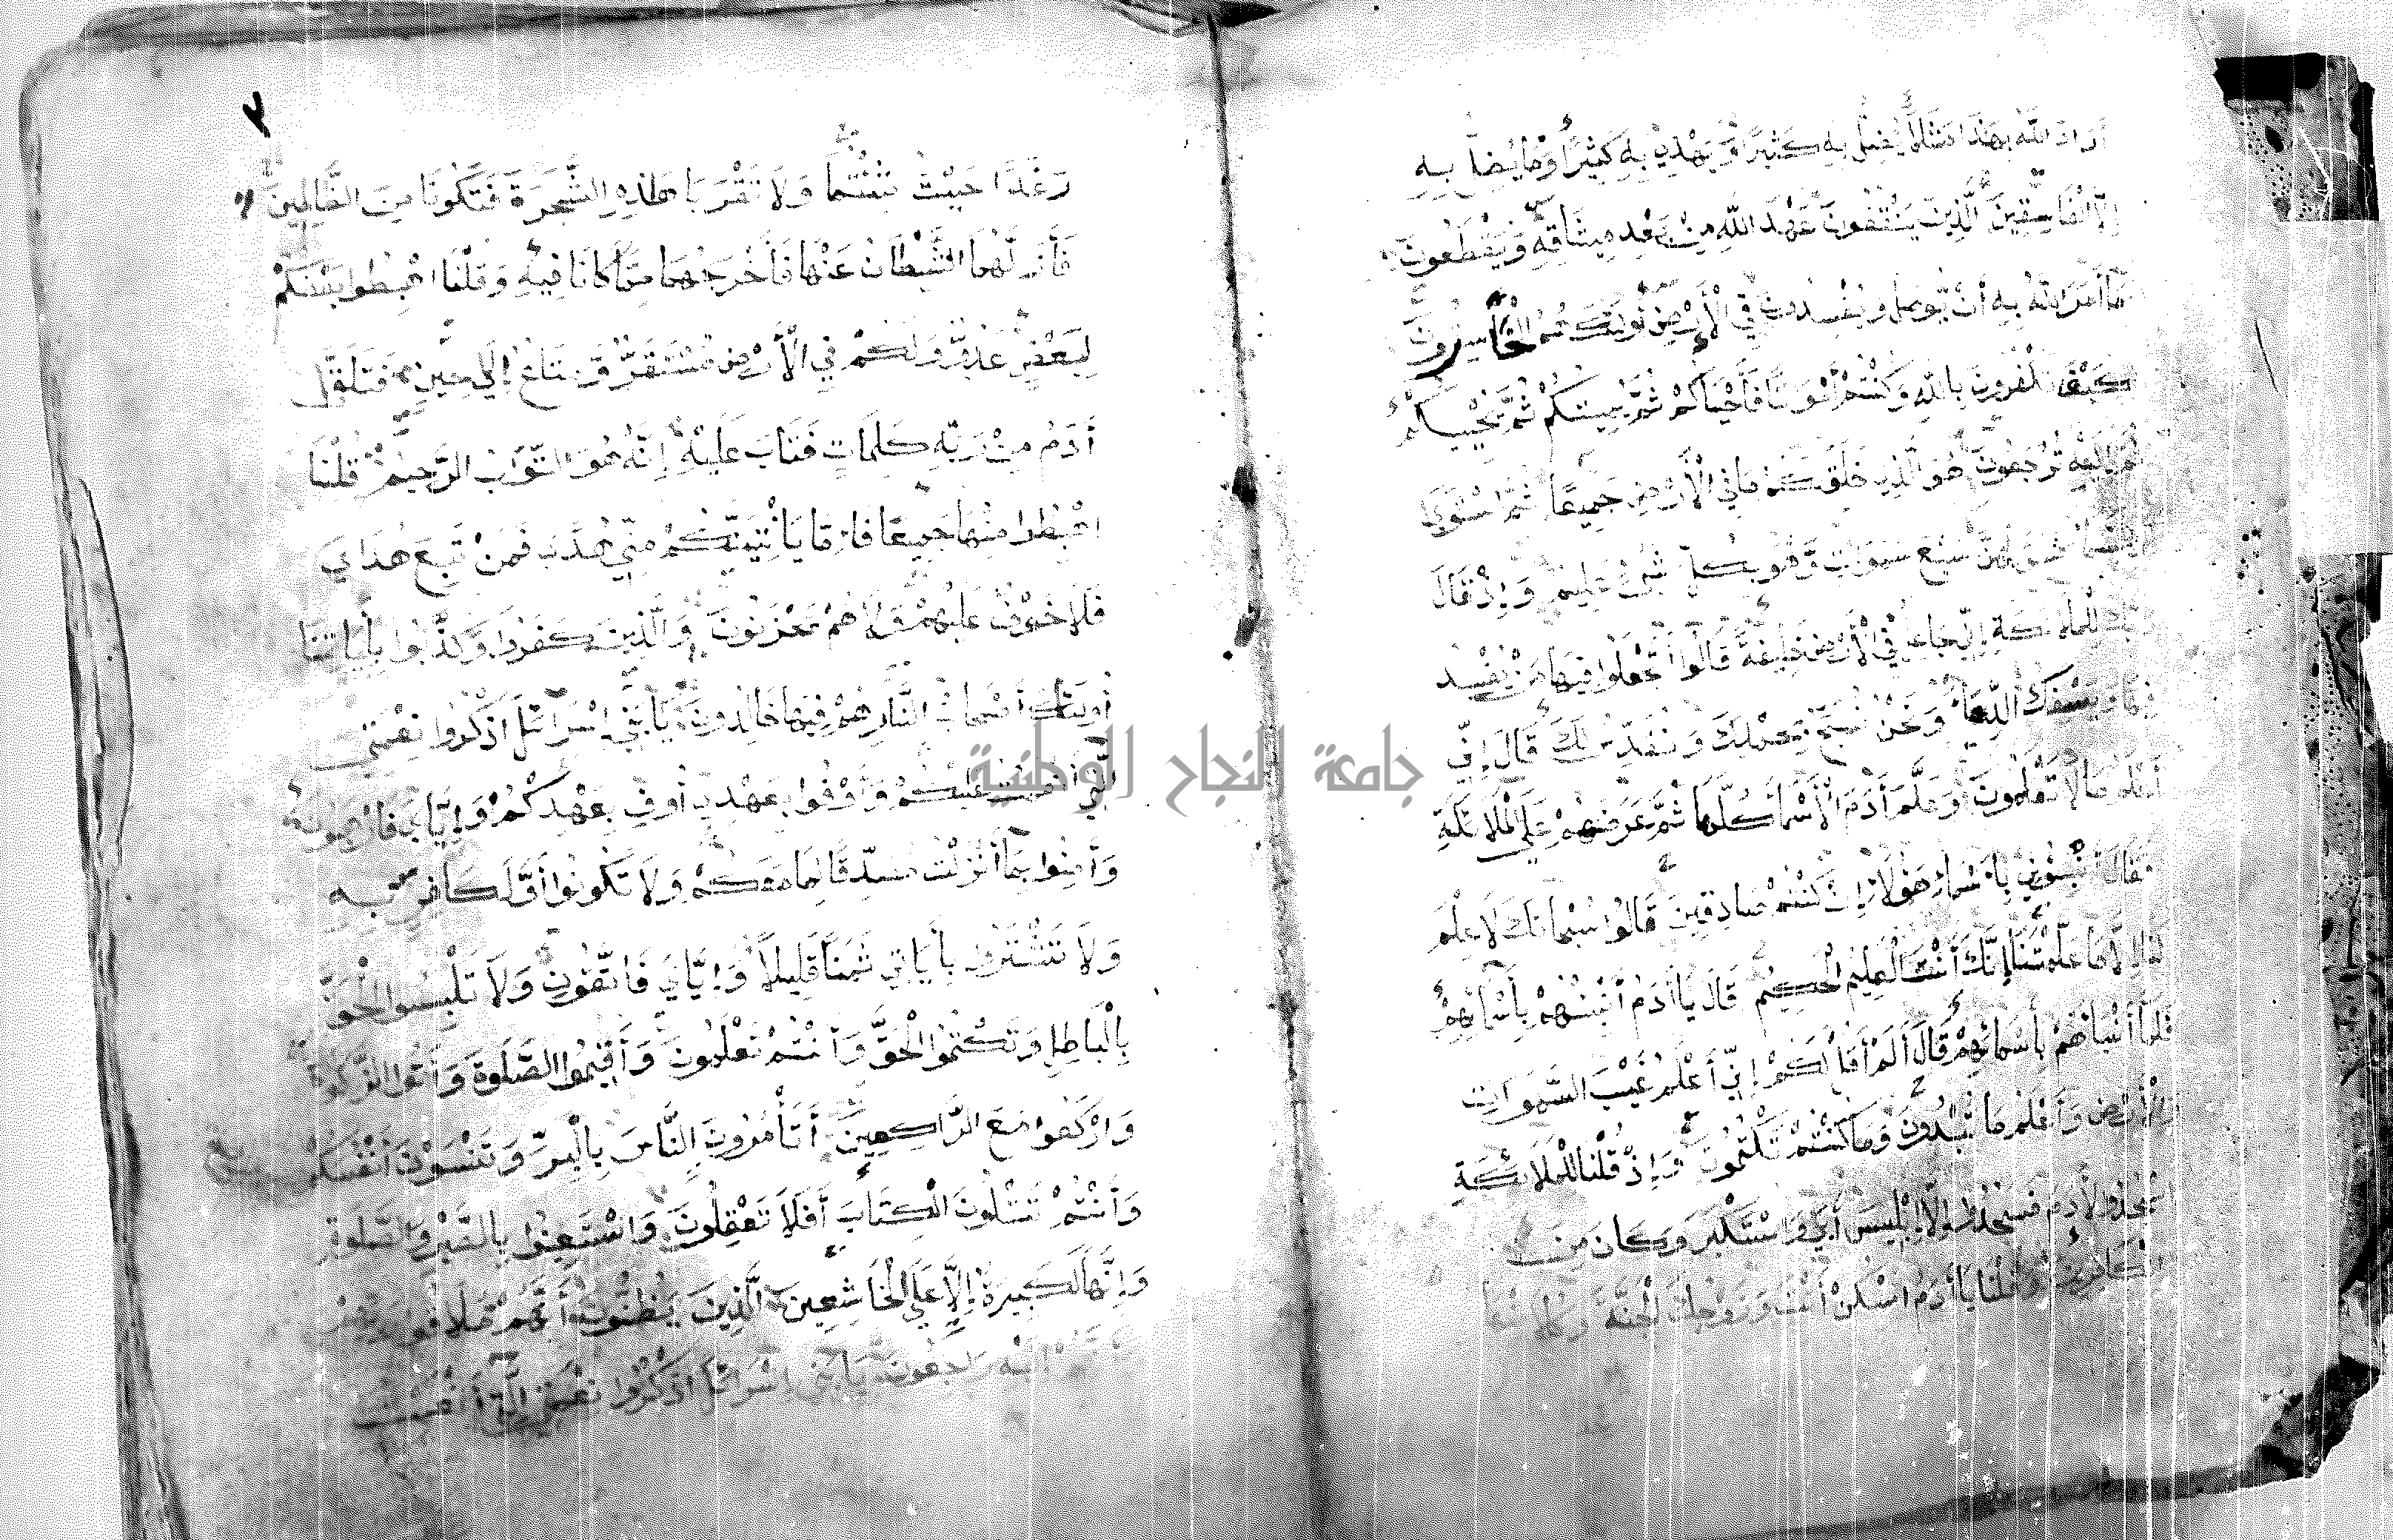 أَرَادَ اللّٰهُ بِهَذَا مَثَلًا يُضِلُّ بِهِ كَثِيرًا وَّيَهْدِي بِهِ كَثِيرًا وَمَا يُضِلُّ بِهِ
إِلَّا الْفَاسِقِينَ الَّذِينَ يَنْقُضُونَ عَهْدَ اللّٰهِ مِنْ بَعْدِ مِيثَاقِهِ وَيَقْطَعُونَ
مَا أَمَرَ اللّٰهُ بِهِ أَنْ يُّوصَلَ وَيُفْسِدُونَ فِي الْأَرْضِ أُولَئِكَ هُمُ الْخَاسِرُونَ
كَيْفَ تَكْفُرُونَ بِاللّٰهِ وَكُنْتُمْ أَمْوَاتًا فَأَحْيَاكُمْ ثُمَّ يُمِيتُكُمْ ثُمَّ يُحْيِيكُمْ
ثُمَّ إِلَيْهِ تُرْجَعُونَ هُوَ الَّذِي خَلَقَ لَكُمْ مَا فِي الْأَرْضِ جَمِيعًا ثُمَّ اسْتَوَى
سَبْعَ سَمَوَاتٍ وَّهُوَ بِكُلِّ شَيْءٍ عَلِيمٌ وَإِذْ قَالَ
رَبُّكَ لِلْمَلَائِكَةِ إِنِّي جَاعِلٌ فِي الْأَرْضِ خَلِيفَةً قَالُوا أَتَجْعَلُ فِيهَا مَنْ يُفْسِدُ
فِيهَا وَيَسْفِكُ الدِّمَاءَ وَنَحْنُ نُسَبِّحُ بِحَمْدِكَ وَنُقَدِّسُ لَكَ قَالَ إِنِّي
أَعْلَمُ مَا لَا تَعْلَمُونَ وَعَلَّمَ أَدَمَ الْأَسْمَاءَ كُلَّهَا ثُمَّ عَرَضَهُمْ عَلَى الْمَلَائِكَةِ
فَقَالَ أَنْبِئُونِي بِأَسْمَاءِ هَؤُلَاءِ إِنْ كُنْتُمْ صَادِقِينَ قَالُوا سُبْحَانَكَ لَا عِلْمَ
لَنَا إِلَّا مَا عَلَّمْتَنَا إِنَّكَ أَنْتَ الْعَلِيمُ الْحَكِيمُ قَالَ يَا أَدَمُ أَنْبِئْهُمْ بِأَسْمَائِهِمْ
فَلَمَّا أَنْبَأَهُمْ بِأَسْمَائِهِمْ قَالَ أَلَمْ أَقُلْ لَكُمْ إِنِّي أَعْلَمُ غَيْبَ السَّمَوَاتِ
وَالْأَرْضِ وَأَعْلَمُ مَا تُبْدُونَ وَمَا كُنْتُمْ تَكْتُمُونَ وَإِذْ قُلْنَا لِلْمَلَائِكَةِ
اسْجُدُوا لِأَدَمَ فَسَجَدُوا إِلَّا إِبْلِيسَ أَبَى وَاسْتَكْبَرَ وَكَانَ مِنَ
الْكَافِرِينَ وَقُلْنَا يَا أَدَمُ اسْكُنْ أَنْتَ وَزَوْجُكَ الْجَنَّةَ وَكُلَا مِنْهَا
٢
رَغَدًا حَيْثُ شِئْتُمَا وَلَا تَقْرَبَا هَذِهِ الشَّجَرَةَ فَتَكُونَا مِنَ الظَّالِمِينَ
فَأَزَلَّهُمَا الشَّيْطَانُ عَنْهَا فَأَخْرَجَهُمَا مِمَّا كَانَا فِيهِ وَقُلْنَا اهْبِطُوا بَعْضُكُمْ
لِبَعْضٍ عَدُوٌّ وَلَكُمْ فِي الْأَرْضِ مُسْتَقَرٌّ وَّمَتَاعٌ إِلَى حِينٍ فَتَلَقَّى
أَدَمُ مِنْ رَبِّهِ كَلِمَاتٍ فَتَابَ عَلَيْهِ إِنَّهُ هُوَ التَّوَّابُ الرَّحِيمُ قُلْنَا
اهْبِطُوا مِنْهَا جَمِيعًا فَإِمَّا يَأْتِيَنَّكُمْ مِنِّي هُدًى فَمَنْ تَبِعَ هُدَايَ
فَلَا خَوْفٌ عَلَيْهِمْ وَلَا هُمْ يَحْزَنُونَ وَالَّذِينَ كَفَرُوا وَكَذَّبُوا بِأَيَاتِنَا
أُولَئِكَ أَصْحَابُ النَّارِ هُمْ فِيهَا خَالِدُونَ يَا بَنِي إِسْرَائِيلَ اذْكُرُوا نِعْمَتِي
الَّتِي أَنْعَمْتُ عَلَيْكُمْ وَأَوْفُوا بِعَهْدِي أُوفِ بِعَهْدِكُمْ وَإِيَّايَ فَارْهَبُونِ
وَأَمِنُوا بِمَا أَنْزَلْتُ مُصَدِّقًا لِمَا مَعَكُمْ وَلَا تَكُونُوا أَوَّلَ كَافِرٍ بِهِ
وَلَا تَشْتَرُوا بِأَيَاتِي ثَمَنًا قَلِيلًا وَإِيَّايَ فَاتَّقُونِ وَلَا تَلْبِسُوا الْحَقَّ
بِالْبَاطِلِ وَتَكْتُمُوا الْحَقَّ وَأَنْتُمْ تَعْلَمُونَ وَأَقِيمُوا الصَّلَوةَ وَأَتُوا الزَّكَوةَ
وَارْكَعُوا مَعَ الرَّاكِعِينَ أَتَأْمُرُونَ النَّاسَ بِالْبِرِّ وَتَنْسَوْنَ أَنْفُسَكُمْ
وَأَنْتُمْ تَتْلُونَ الْكِتَابَ أَفَلَا تَعْقِلُونَ وَاسْتَعِينُوا بِالصَّبْرِ وَالصَّلَوةِ
وَإِنَّهَا لَكَبِيرَةٌ إِلَّا عَلَى الْخَاشِعِينَ الَّذِينَ يَظُنُّونَ أَنَّهُمْ مُلَاقُوا
إِلَيْهِ رَاجِعُونَ يَا بَنِي إِسْرَائِيلَ اذْكُرُوا نِعْمَتِيَ الَّتِي أَنْعَمْتُ
جامعة النجاح الوطنية